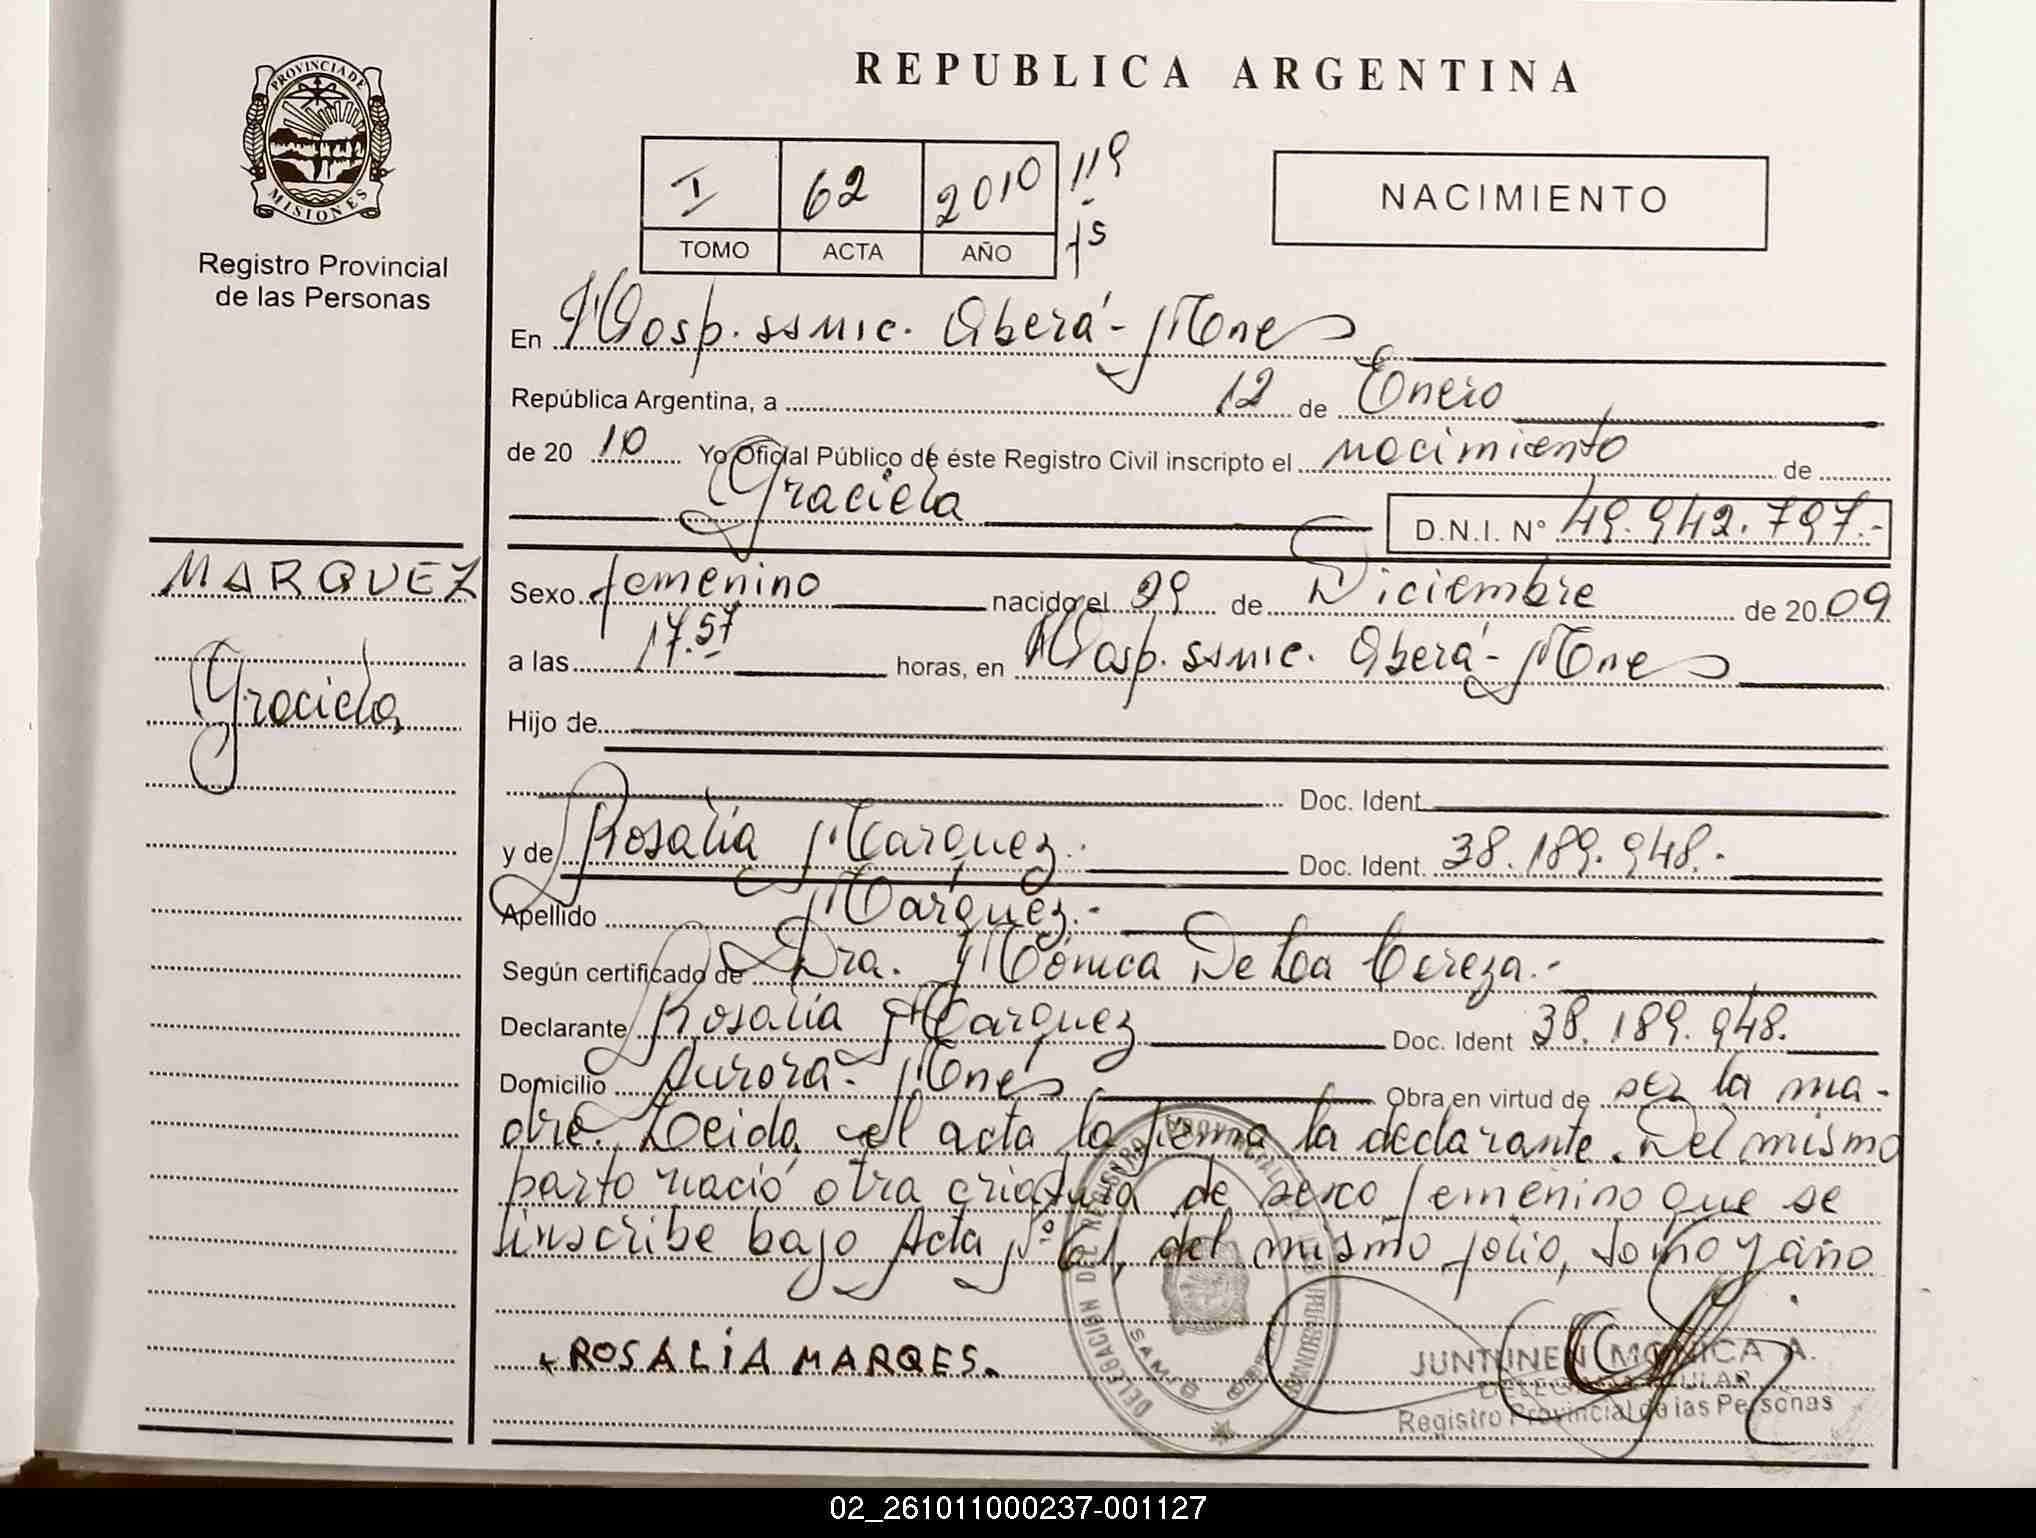 PROVINCIA DE
MISIONES
Registro Provincial
de las Personas
MARQUEZ
Graciela
REPUBLICA ARGENTINA
I 62 2010 119
TOMO ACTA AÑO fs
NACIMIENTO
En Hosp. ssmic. Oberá - Mnes
República Argentina, a 12 de Enero
de 20 10 Yo Oficial Público de éste Registro Civil inscripto el nacimiento de
Graciela D.N.I. N° 49.942.797.-
Sexo femenino nacido el 29 de Diciembre de 20 09
a las 17.57 horas, en Hosp. ssmic. Oberá - Mnes
Hijo de
Doc. Ident.
y de Rosalia Marquez.- Doc. Ident. 38.189.948.-
Apellido Marquez.-
Según certificado de Dra. Mónica De La Cereza.-
Declarante Rosalia Marquez Doc. Ident 38.189.948.
Domicilio Aurora - Mnes Obra en virtud de ser la ma-
dre. Leida el acta la firma la declarante. Del mismo
parto nació otra criatura de sexo femenino que se
inscribe bajo Acta Nº 61, del mismo folio, tomo y año
ROSALIA MARQES.
JUNTUNEN MONICA A.
DELEGADA TITULAR
Registro Provincial de las Personas
02_261011000237-001127